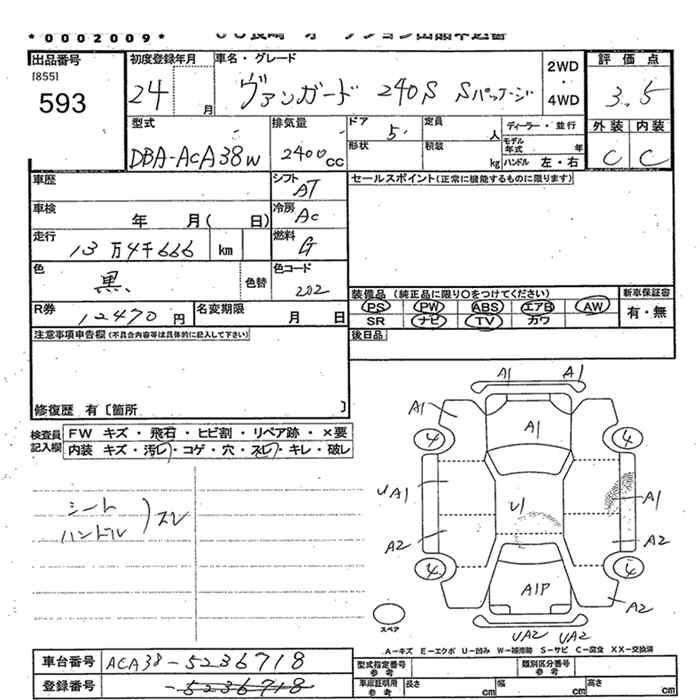 *0002009*
出品番号 初度登録年月 車名・グレード 2WD 評価点
[855]
593 24 月 ヴァンガード 240S Sパッケージ 4WD 3.5
型式 排気量 ドア 5 定員 人 ディーラー・並行 外装 内装
DBA-ACA38W 2400cc 形状 積載 kg モデル年式 年 ハンドル 左・右 C C
車歴 シフト AT セールスポイント(正常に機能するものに限ります)
車検 年 月( 日) 冷房 AC
走行 13万4千666 km 燃料 G
色 黒 色替 色コード 202 装備品 (純正品に限り○をつけてください) 新車保証書
R券 12470円 名変期限 月 日 PS PW ABS エアB AW 有・無
SR ナビ TV カワ
注意事項申告欄(不具合内容等は具体的に記入して下さい) 後日品
修復歴 有〔箇所 〕
検査員記入欄 FW キズ・飛石・ヒビ割・リペア跡・×要
内装 キズ・汚レ・コゲ・穴・スレ・キレ・破レ
シート
ハンドル )スレ
A1 A1
A1 A1 A1
4 4
UA1 U1 A1
A2 A2
4 4
A1P A2
スペア UA2 UA2
A-キズ E-エクボ U-凹み W-補修跡 S-サビ C-腐食 XX-交換済
車台番号 ACA38-5236718 型式指定番号 参考 類別区分番号 参考
登録番号 5236718 車庫証明用 参考 長さ cm 幅 cm 高さ cm